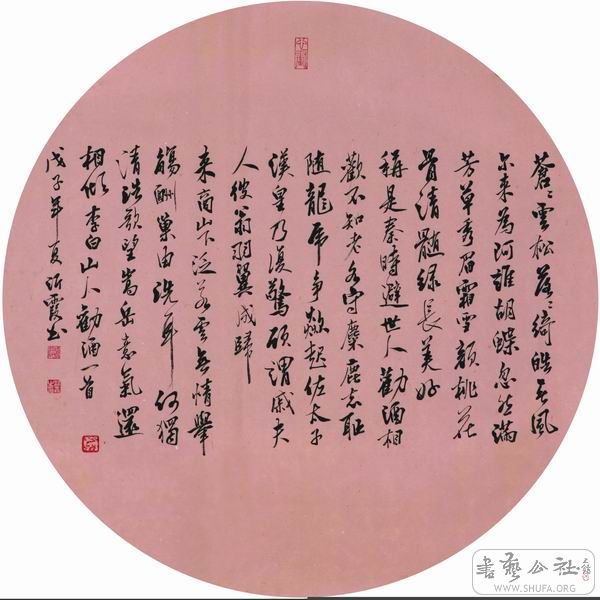 蒼〻雲松落〻綺皓春風
尔来為阿誰胡蝶忽然滿
芳草秀眉霜雪顏桃花
骨清髓綠長美好
稱是秦時避世人勸酒相
歡不知老各守麋鹿志耻
随龍虎争欻起佐太子
漢皇乃復驚顧謂戚夫
人彼翁羽翼成歸
来商山下泛若雲無情舉
觴酬巢由洗耳何獨
清浩歌望嵩岳意氣還
相傾李白山人勸酒一首
戊子年夏霞书
書藝公社
WWW.SHUFA.ORG